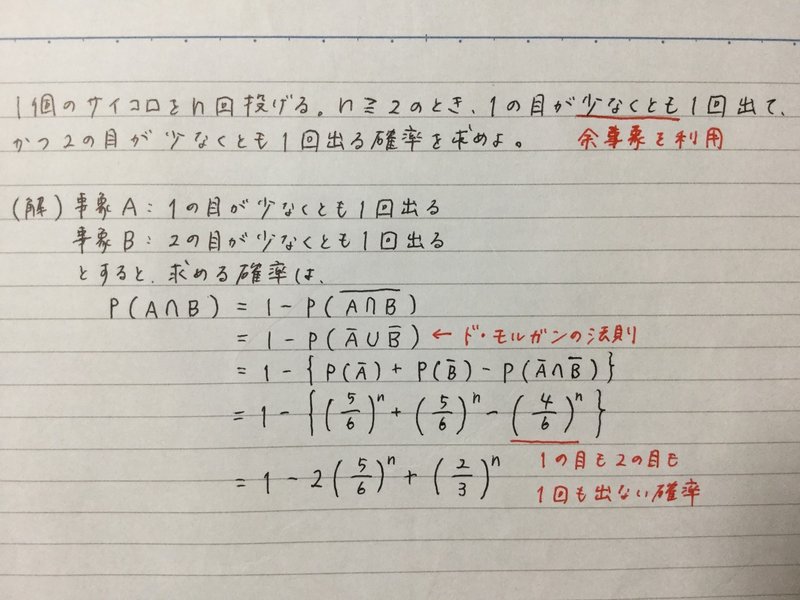 1個のサイコロをn回投げる。n≧2のとき、1の目が少なくとも1回出て、
かつ2の目が少なくとも1回出る確率を求めよ。 余事象を利用
(解) 事象A: 1の目が少なくとも1回出る
事象B: 2の目が少なくとも1回出る
とすると、求める確率は、
P(A∩B) = 1 - P(\overline{A∩B})
= 1 - P(Ā∪B̄) ← ド・モルガンの法則
= 1 - {P(Ā) + P(B̄) - P(Ā∩B̄)}
= 1 - {(5/6)^n + (5/6)^n - (4/6)^n}
= 1 - 2(5/6)^n + (2/3)^n
1の目も2の目も
1回も出ない確率